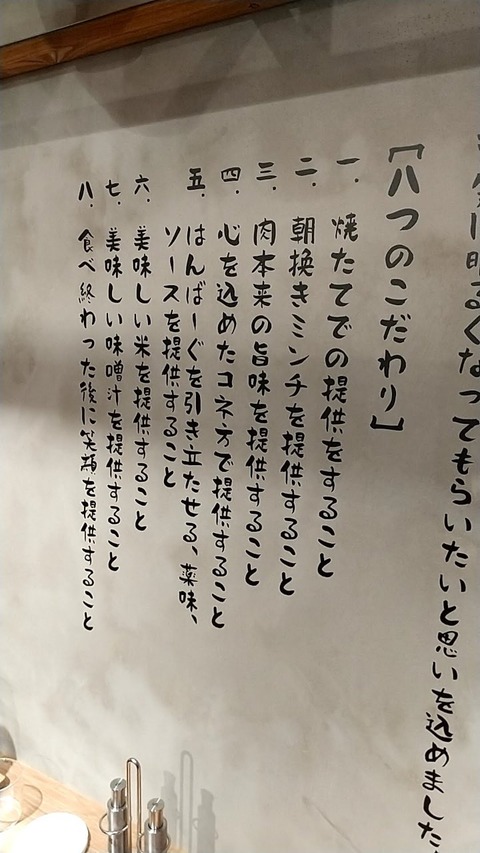 明るくなってもらいたいと思いを込めました
[八つのこだわり]
一. 焼たてでの提供をすること
二. 朝換きミンチを提供すること
三. 肉本来の旨味を提供すること
四. 心を込めたコネ方で提供すること
五. はんばーぐを引き立たせる、薬味、
ソースを提供すること
六. 美味しい米を提供すること
七. 美味しい味噌汁を提供すること
八. 食べ終わった後に笑顔を提供すること